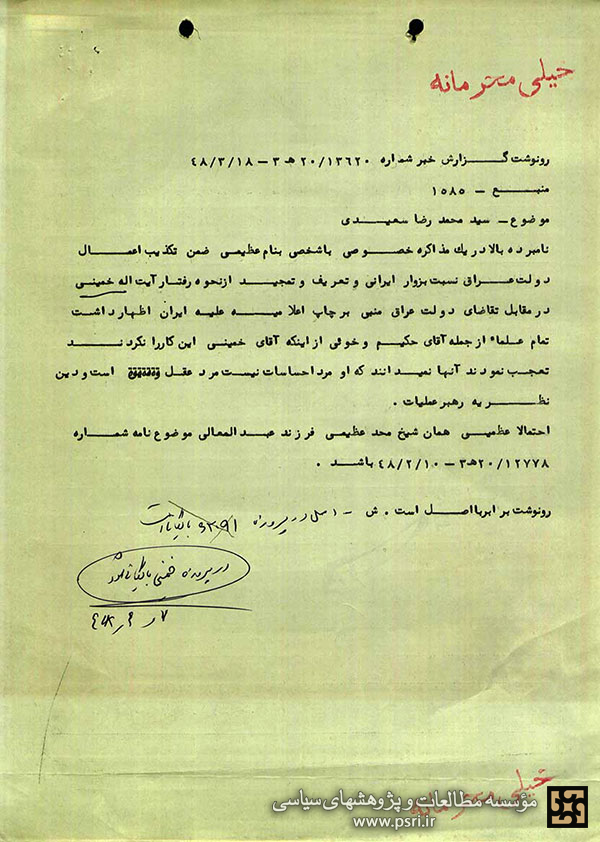 خیلی محرمانه
رونوشت گزارش خبر شماره ۲۰/۱۳۶۲۰ هـ ۳ – ۴۸/۳/۱۸
منبع – ۱۵۸۵
موضوع – سید محمد رضا سعیدی
نامبرده بالا در یك مذاكره خصوصی باشخصی بنام عظیمی ضمن تكذیب اعمال
دولت عراق نسبت بزوار ایرانی و تعریف و تمجید از نحوه رفتار آیت اله خمینی
در مقابل تقاضای دولت عراق منبی بر چاپ اعلامیه علیه ایران اظهار داشت
تمام علماء از جمله آقای حكیم و خوئی از اینكه آقای خمینی این كار را نكردند
تعجب نمودند آنها نمیدانند كه او مرد احساسات نیست مرد عقل است و دین
نظریه رهبر عملیات .
احتمالا عظیمی همان شیخ محمد عظیمی فرزند عبدالمعالی موضوع نامه شماره
۲۰/۱۲۷۷۸هـ۳ – ۴۸/۲/۱۰ باشد .
رونوشت برابر با اصل است . ش – اصل در پرونده
در پرونده خمینی بایگانی شود
خیلی محرمانه
مؤسسه مطالعات و پژوهشهای سیاسی
www.psri.ir